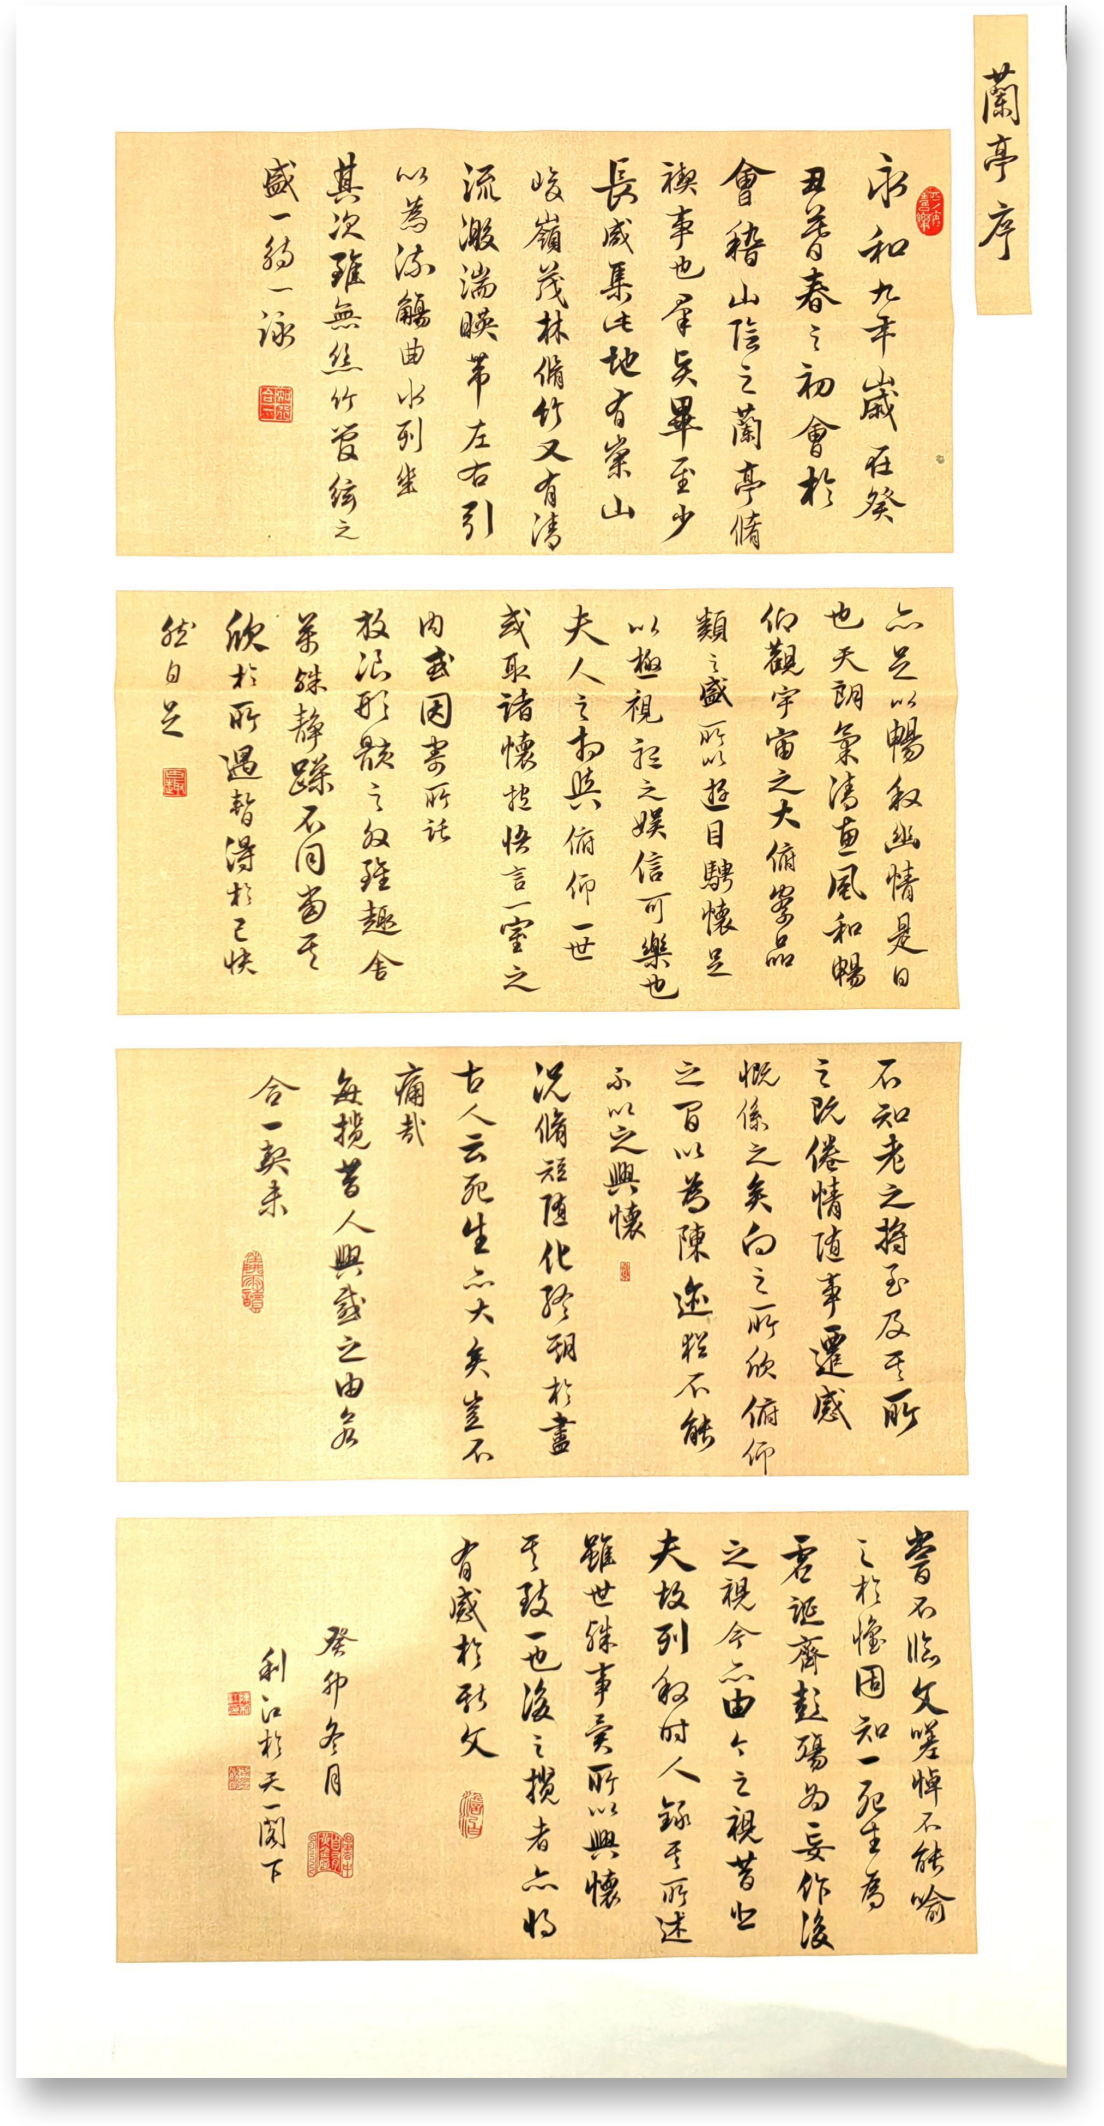 蘭亭序
永和九年歲在癸
丑暮春之初會於
會稽山陰之蘭亭脩
禊事也羣賢畢至少
長咸集此地有崇山
峻嶺茂林脩竹又有清
流激湍暎帶左右引
以為流觴曲水列坐
其次雖無絲竹管絃之
盛一觴一詠
亦足以暢叙幽情是日
也天朗氣清惠風和暢
仰觀宇宙之大俯察品
類之盛所以遊目騁懷足
以極視聽之娛信可樂也
夫人之相與俯仰一世
或取諸懷抱悟言一室之
內或因寄所託
放浪形骸之外雖趣舍
萬殊靜躁不同當其
欣於所遇暫得於己快
然自足
不知老之將至及其所
之既倦情隨事遷感
慨係之矣向之所欣俯仰
之間以為陳迹猶不能
不以之興懷
況脩短隨化終期於盡
古人云死生亦大矣豈不
痛哉
每攬昔人興感之由若
合一契未
嘗不臨文嗟悼不能喻
之於懷固知一死生為
虛誕齊彭殤為妄作後
之視今亦由今之視昔悲
夫故列叙時人錄其所述
雖世殊事異所以興懷
其致一也後之攬者亦將
有感於斯文
癸卯冬月
利江於天一閣下